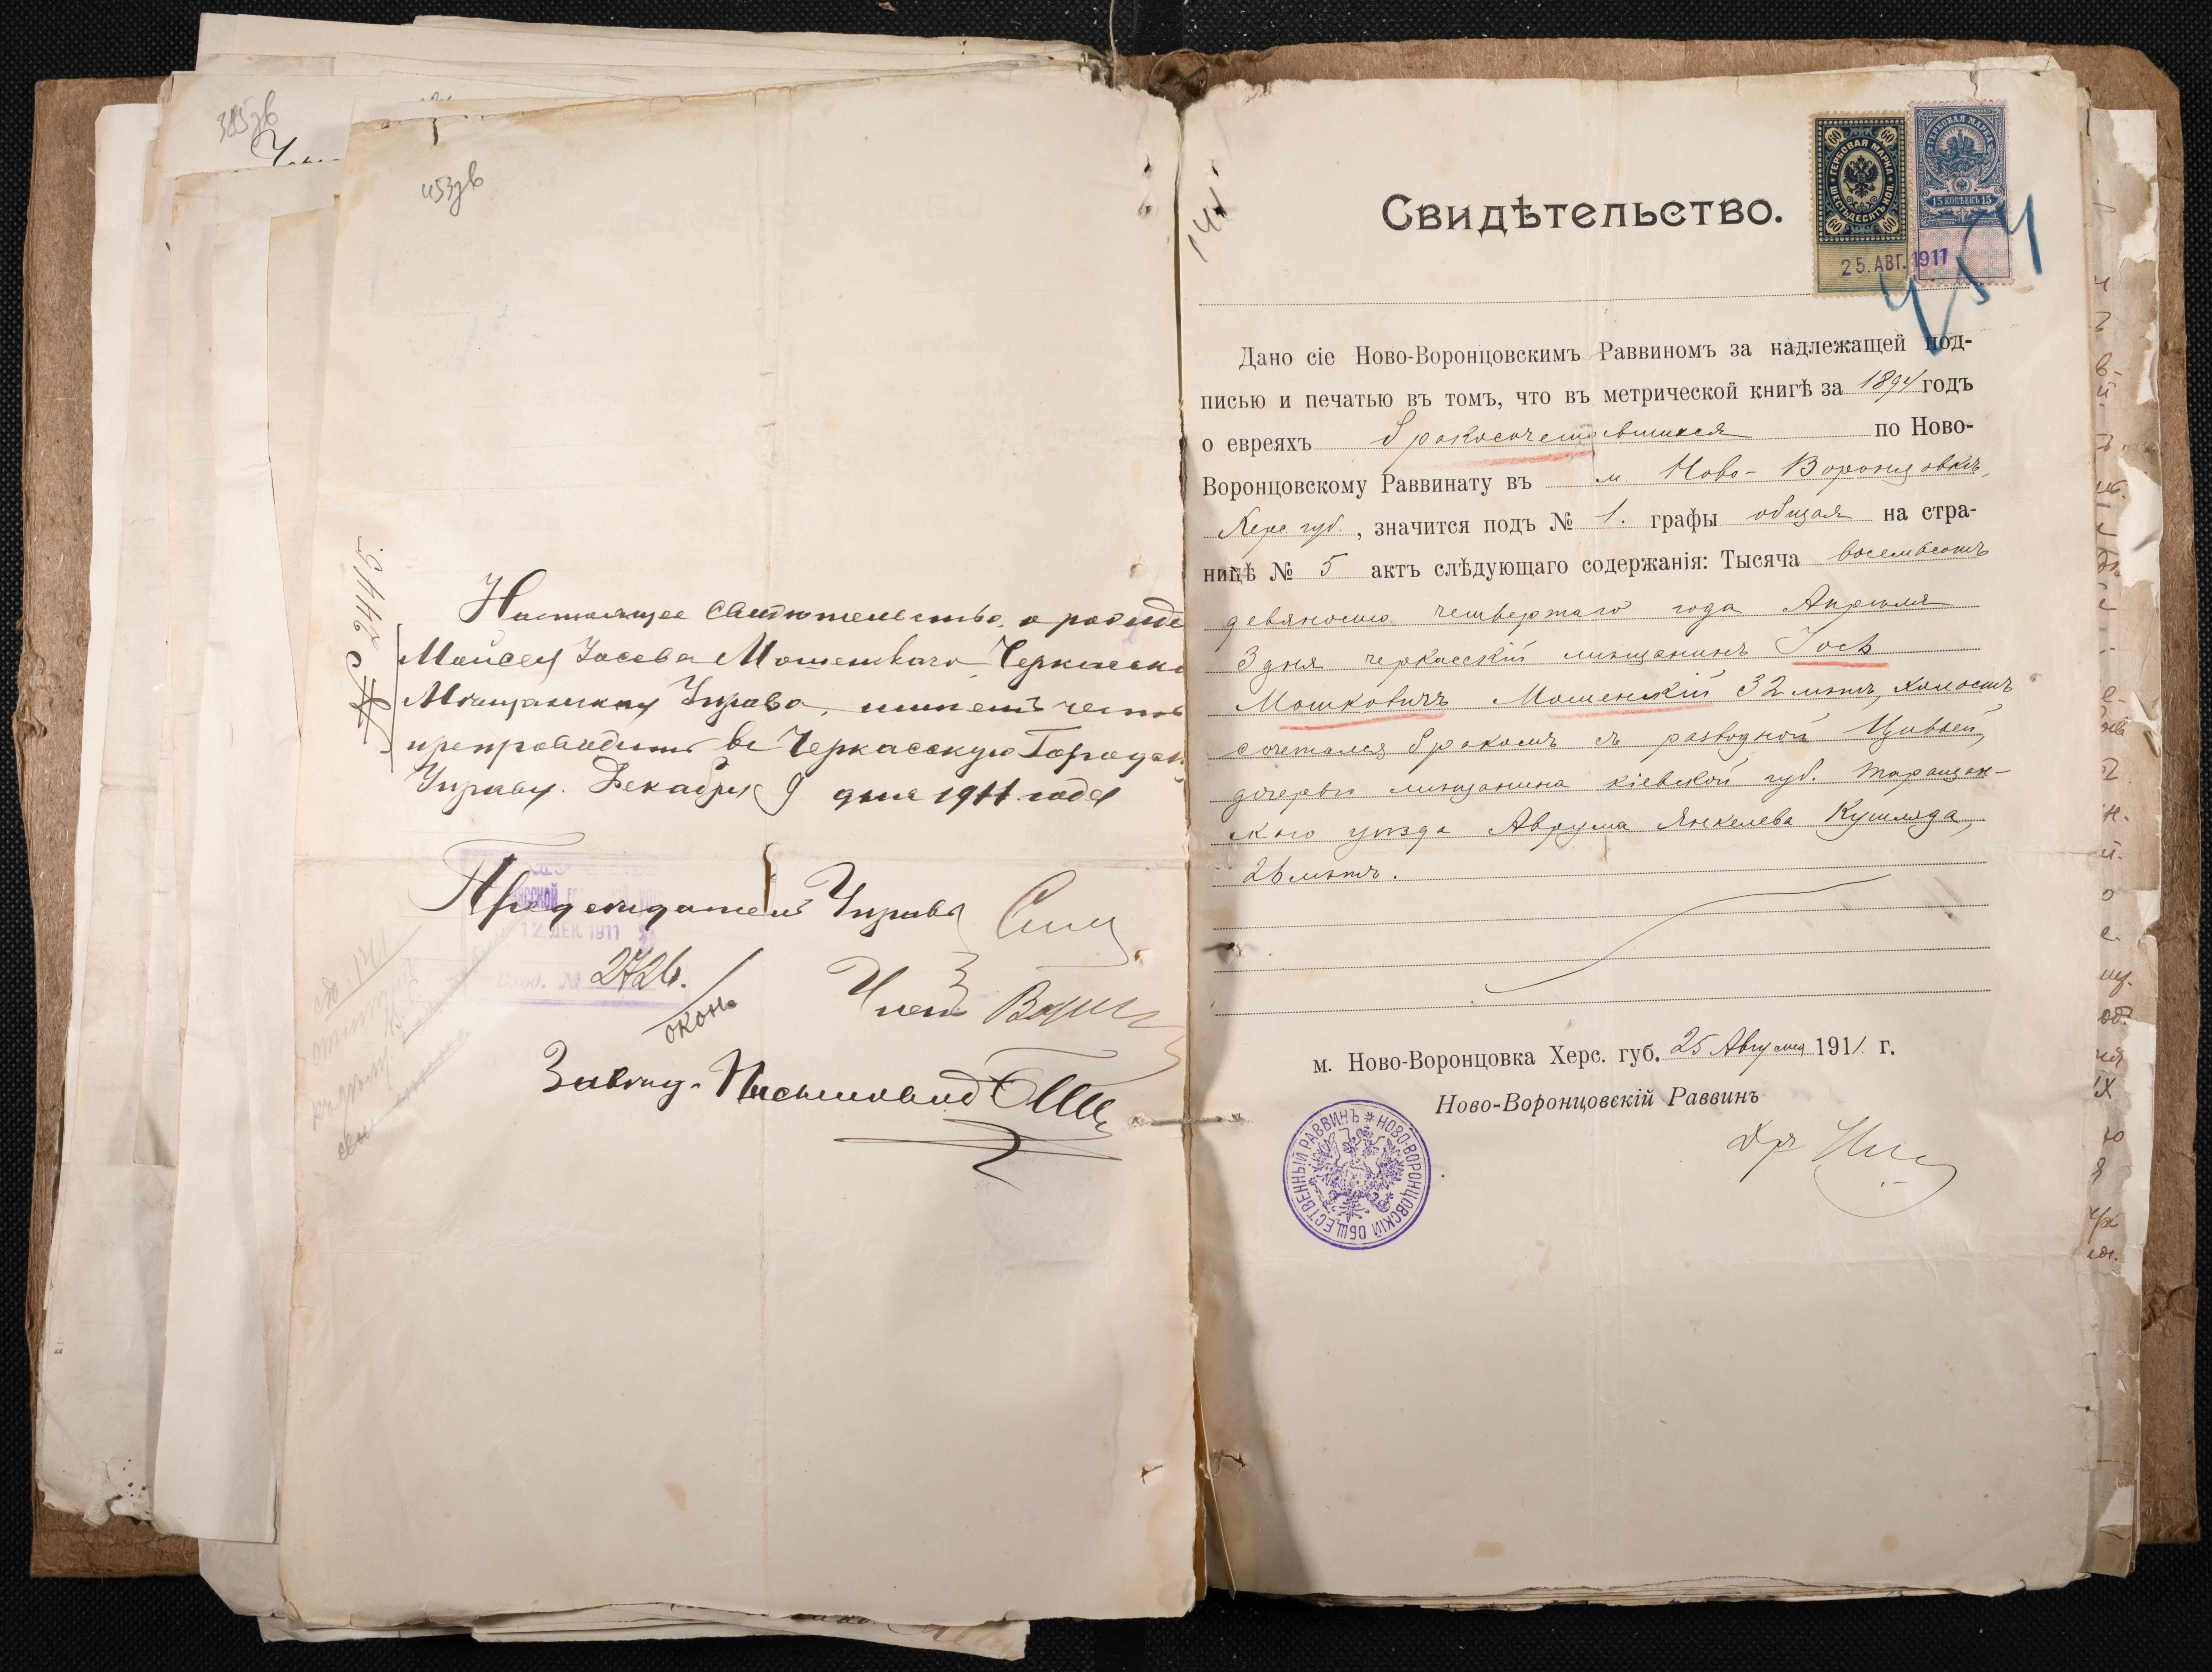 385зв
453зв
№ 24145
Настоящее свидѣтельство о рожде
Мойсея Іосева Мошенскаго Черкасск
Мѣщанская Управа, имѣетъ честь
препроводить въ Черкасскую Городск
Управу. Декабря 9 дня 1911 года
Предсѣдатель Управы
12. ДЕК. 1911
Вход. № 2726.
Членъ
оконч
141
Свидѣтельство.
ГЕРБОВАЯ МАРКА
ШЕСТЬДЕСЯТЪ КОП.
60 60 60 60
ГЕРБОВАЯ МАРКА
15 КОПѢЕКЪ 15
25. АВГ. 1911
454
Дано сіе Ново-Воронцовскимъ Раввиномъ за надлежащей под-
писью и печатью въ томъ, что въ метрической книгѣ за 1894 годъ
о евреяхъ бракосочетавшихся по Ново-
Воронцовскому Раввинату въ м. Ново-Воронцовкѣ,
Херс. губ., значится подъ № 1. графы общая на стра-
ницѣ № 5 актъ слѣдующаго содержанія: Тысяча восемьсотъ
девяносто четвертаго года Апрѣля
3 дня черкасскій мѣщанинъ Іось
Мошковичъ Мошенскій 32 лѣтъ, холостъ
сочетался бракомъ съ разводной Цивьей,
дочерью мѣщанина кіевской губ. таращан-
скаго уѣзда Аврума Янкелева Кушляда,
26 лѣтъ.
м. Ново-Воронцовка Херс. губ. 25 Августа 1911 г.
Ново-Воронцовскій Раввинъ
НОВО-ВОРОНЦОВСКІЙ ОБЩЕСТВЕННЫЙ РАВВИНЪ